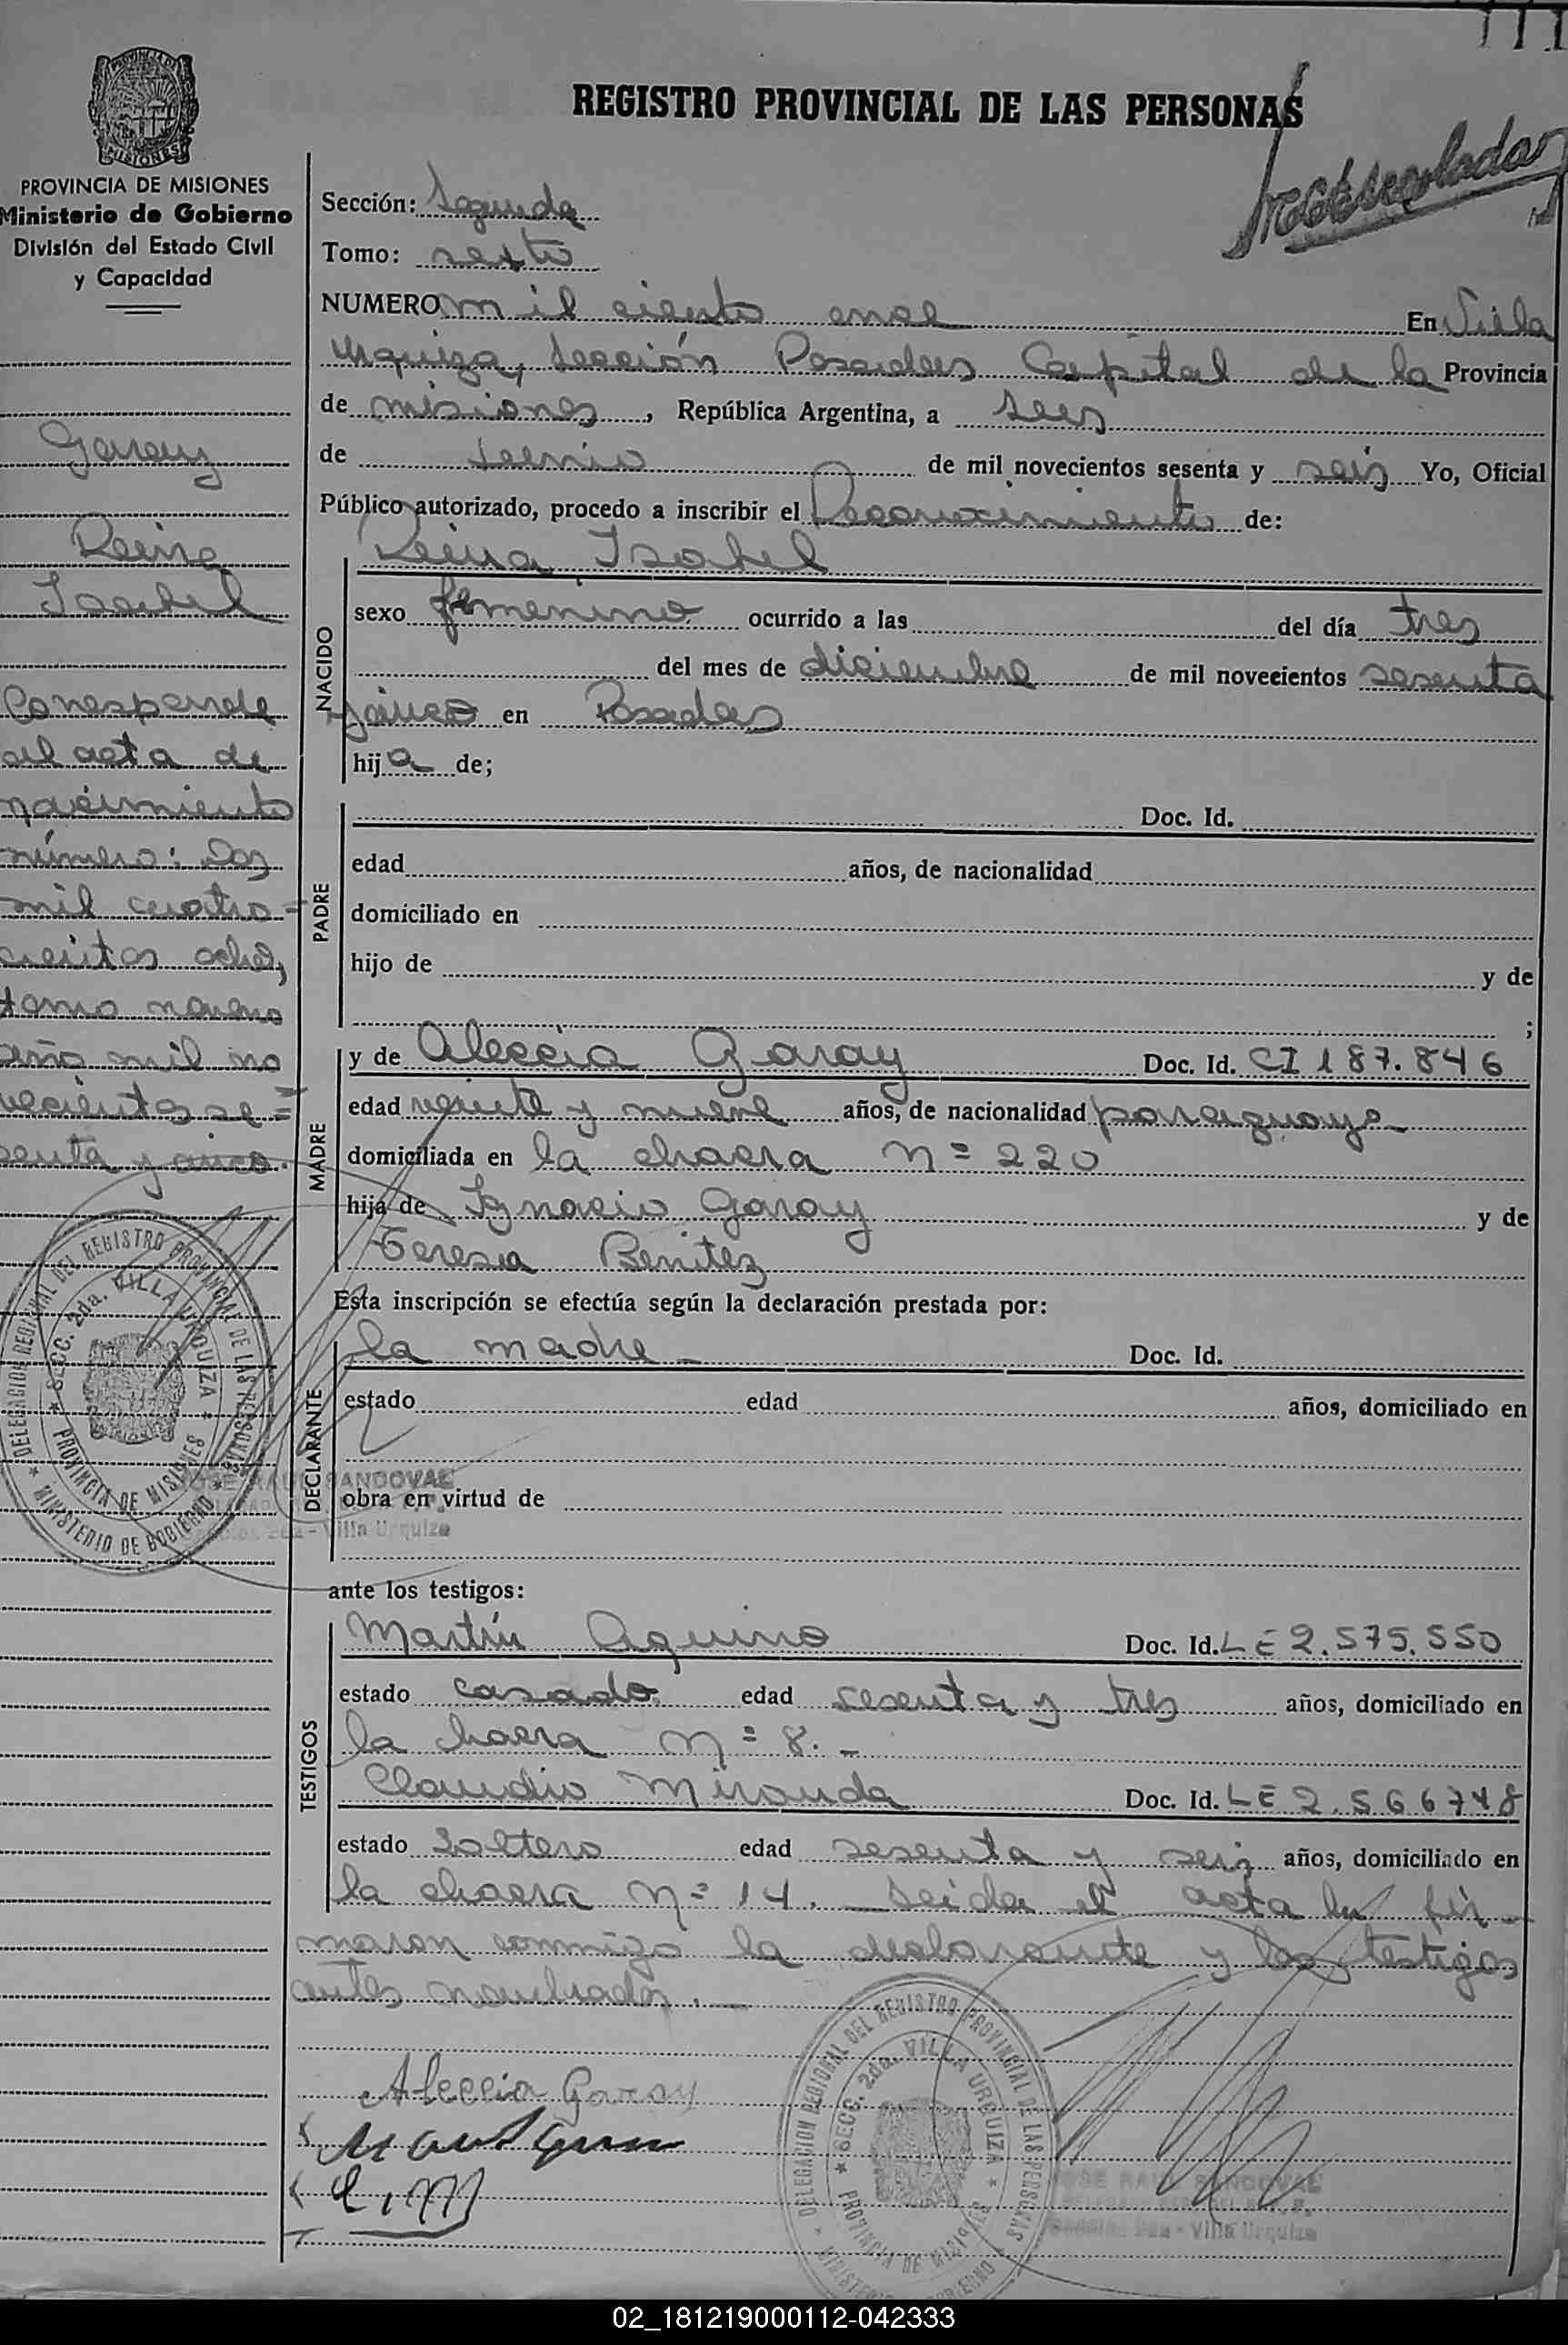 1111
REGISTRO PROVINCIAL DE LAS PERSONAS
PROVINCIA DE MISIONES
Ministerio de Gobierno
División del Estado Civil
y Capacidad
Garay
Reina
Isabel
Corresponde
al acta de
nacimiento
número: Dos
mil cuatro=
cientos ocho,
tomo noveno
año mil no
vecientos se=
senta y cinco.
Sección: Segunda
Tomo: sexto
NUMERO mil ciento once En Villa
Urquiza, Sección Posadas Capital de la Provincia
de misiones, República Argentina, a
de de mil novecientos sesenta y seis Yo, Oficial
Público autorizado, procedo a inscribir el Reconocimiento de:
NACIDO
Reina Isabel
sexo femenino ocurrido a las del día tres
del mes de diciembre de mil novecientos sesenta
y cinco en Posadas
hija de;
PADRE
Doc. Id.
edad años, de nacionalidad
domiciliado en
hijo de y de
;
MADRE
y de Aleccia Garay Doc. Id. CI 187.846
edad veinte y nueve años, de nacionalidad paraguaya
domiciliada en la chacra Nº 220
hija de Ignacio Garay y de
Teresa Benitez
Esta inscripción se efectúa según la declaración prestada por:
DECLARANTE
la madre - Doc. Id.
estado edad años, domiciliado en
obra en virtud de
ante los testigos:
TESTIGOS
Martín Aquino Doc. Id. LE 2.575.550
estado casado edad sesenta y tres años, domiciliado en
la chacra Nº 8. -
Claudio Miranda Doc. Id. LE 2.566748
estado Soltero edad sesenta y seis años, domiciliado en
la chacra Nº 14. Leída el acta la fir-
maron conmigo la declarante y los testigos
antes nombrados. -
Aleccia Garay
C.M
DELEGACION REGIONAL DEL REGISTRO PROVINCIAL DE LAS PERSONAS
SECC. 2da. VILLA URQUIZA
PROVINCIA DE MISIONES
MINISTERIO DE GOBIERNO
JOSE RAUL SANDOVAL
Sección 2da - Villa Urquiza
DELEGACION REGIONAL DEL REGISTRO PROVINCIAL DE LAS PERSONAS
SECC. 2da. VILLA URQUIZA
PROVINCIA DE MISIONES
MINISTERIO DE GOBIERNO
JOSE RAUL SANDOVAL
Sección 2da - Villa Urquiza
02_181219000112-042333